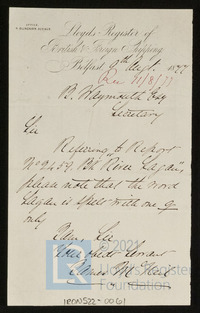 OFFICE
Lloyd's Register of
British & Foreign Shipping
Belfast, 9th Augt. 1877
Rec 11/8/77
B. Waymouth Esq
Secretary
Sir
Referring to Report
No 2459. Bk "River Lagan",
please note that the word
Lagan is spelt with one g
only
I am, Sir
Your obedt. Servant
© 2021
Lloyd's Register
Foundation
IRON522-0061